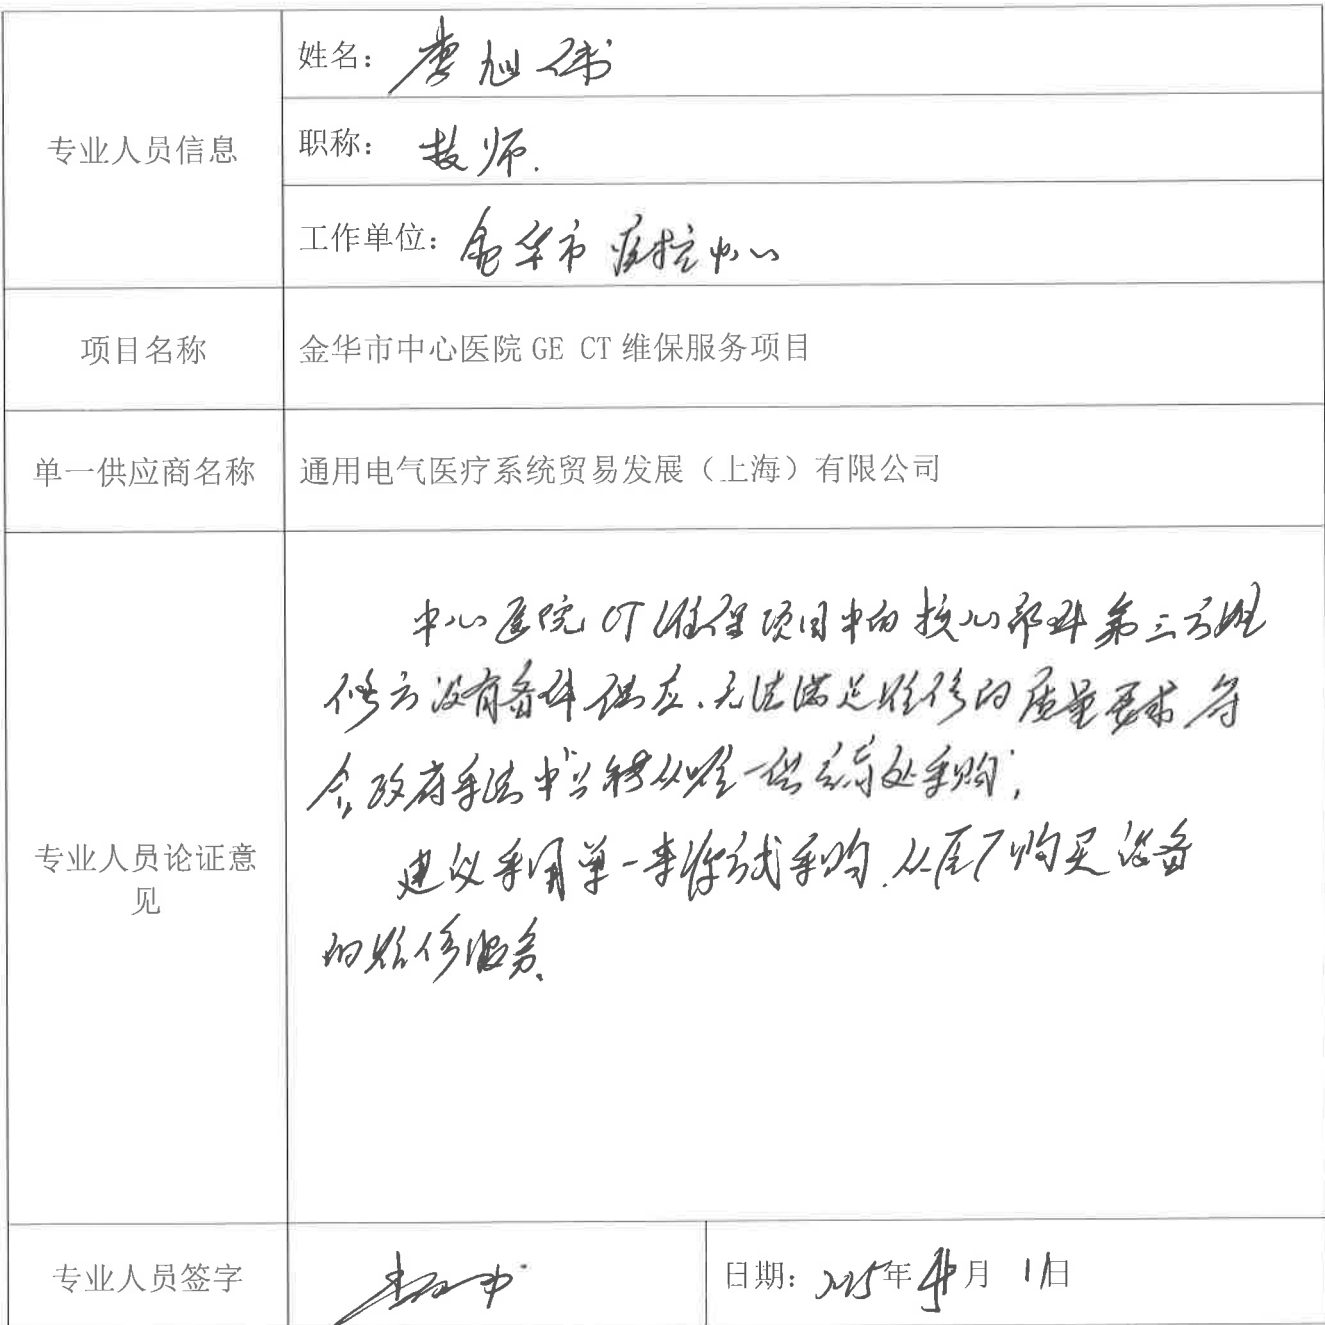 专业人员信息
姓名：旭伟
职称：技师.
工作单位：金华市疾控中心
项目名称
金华市中心医院 GE CT 维保服务项目
单一供应商名称
通用电气医疗系统贸易发展（上海）有限公司
专业人员论证意
见
中心医院CT维保项目中的核心部件第三方维
修方没有备件供应、无法满足维修的质量要求 符
合政府采法中“只能从唯一供应商处采购”，
建议采用单一来源方式采购.从原厂购买设备
的维修服务.
专业人员签字
日期：2025年 月 11日